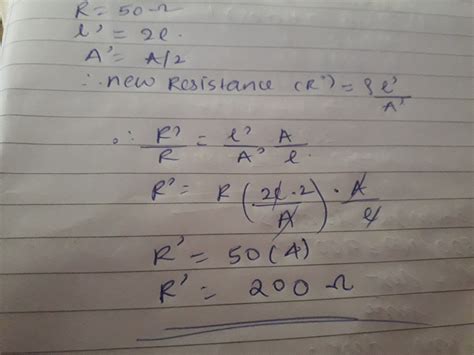 R = 50 Ω
l' = 2l.
A' = A/2
∴ new Resistance (R') = ρ l'/A'
∴ R'/R = l'/A' A/l.
R' = R (2l · 2/A) · A/l
R' = 50 (4)
R' = 200 Ω